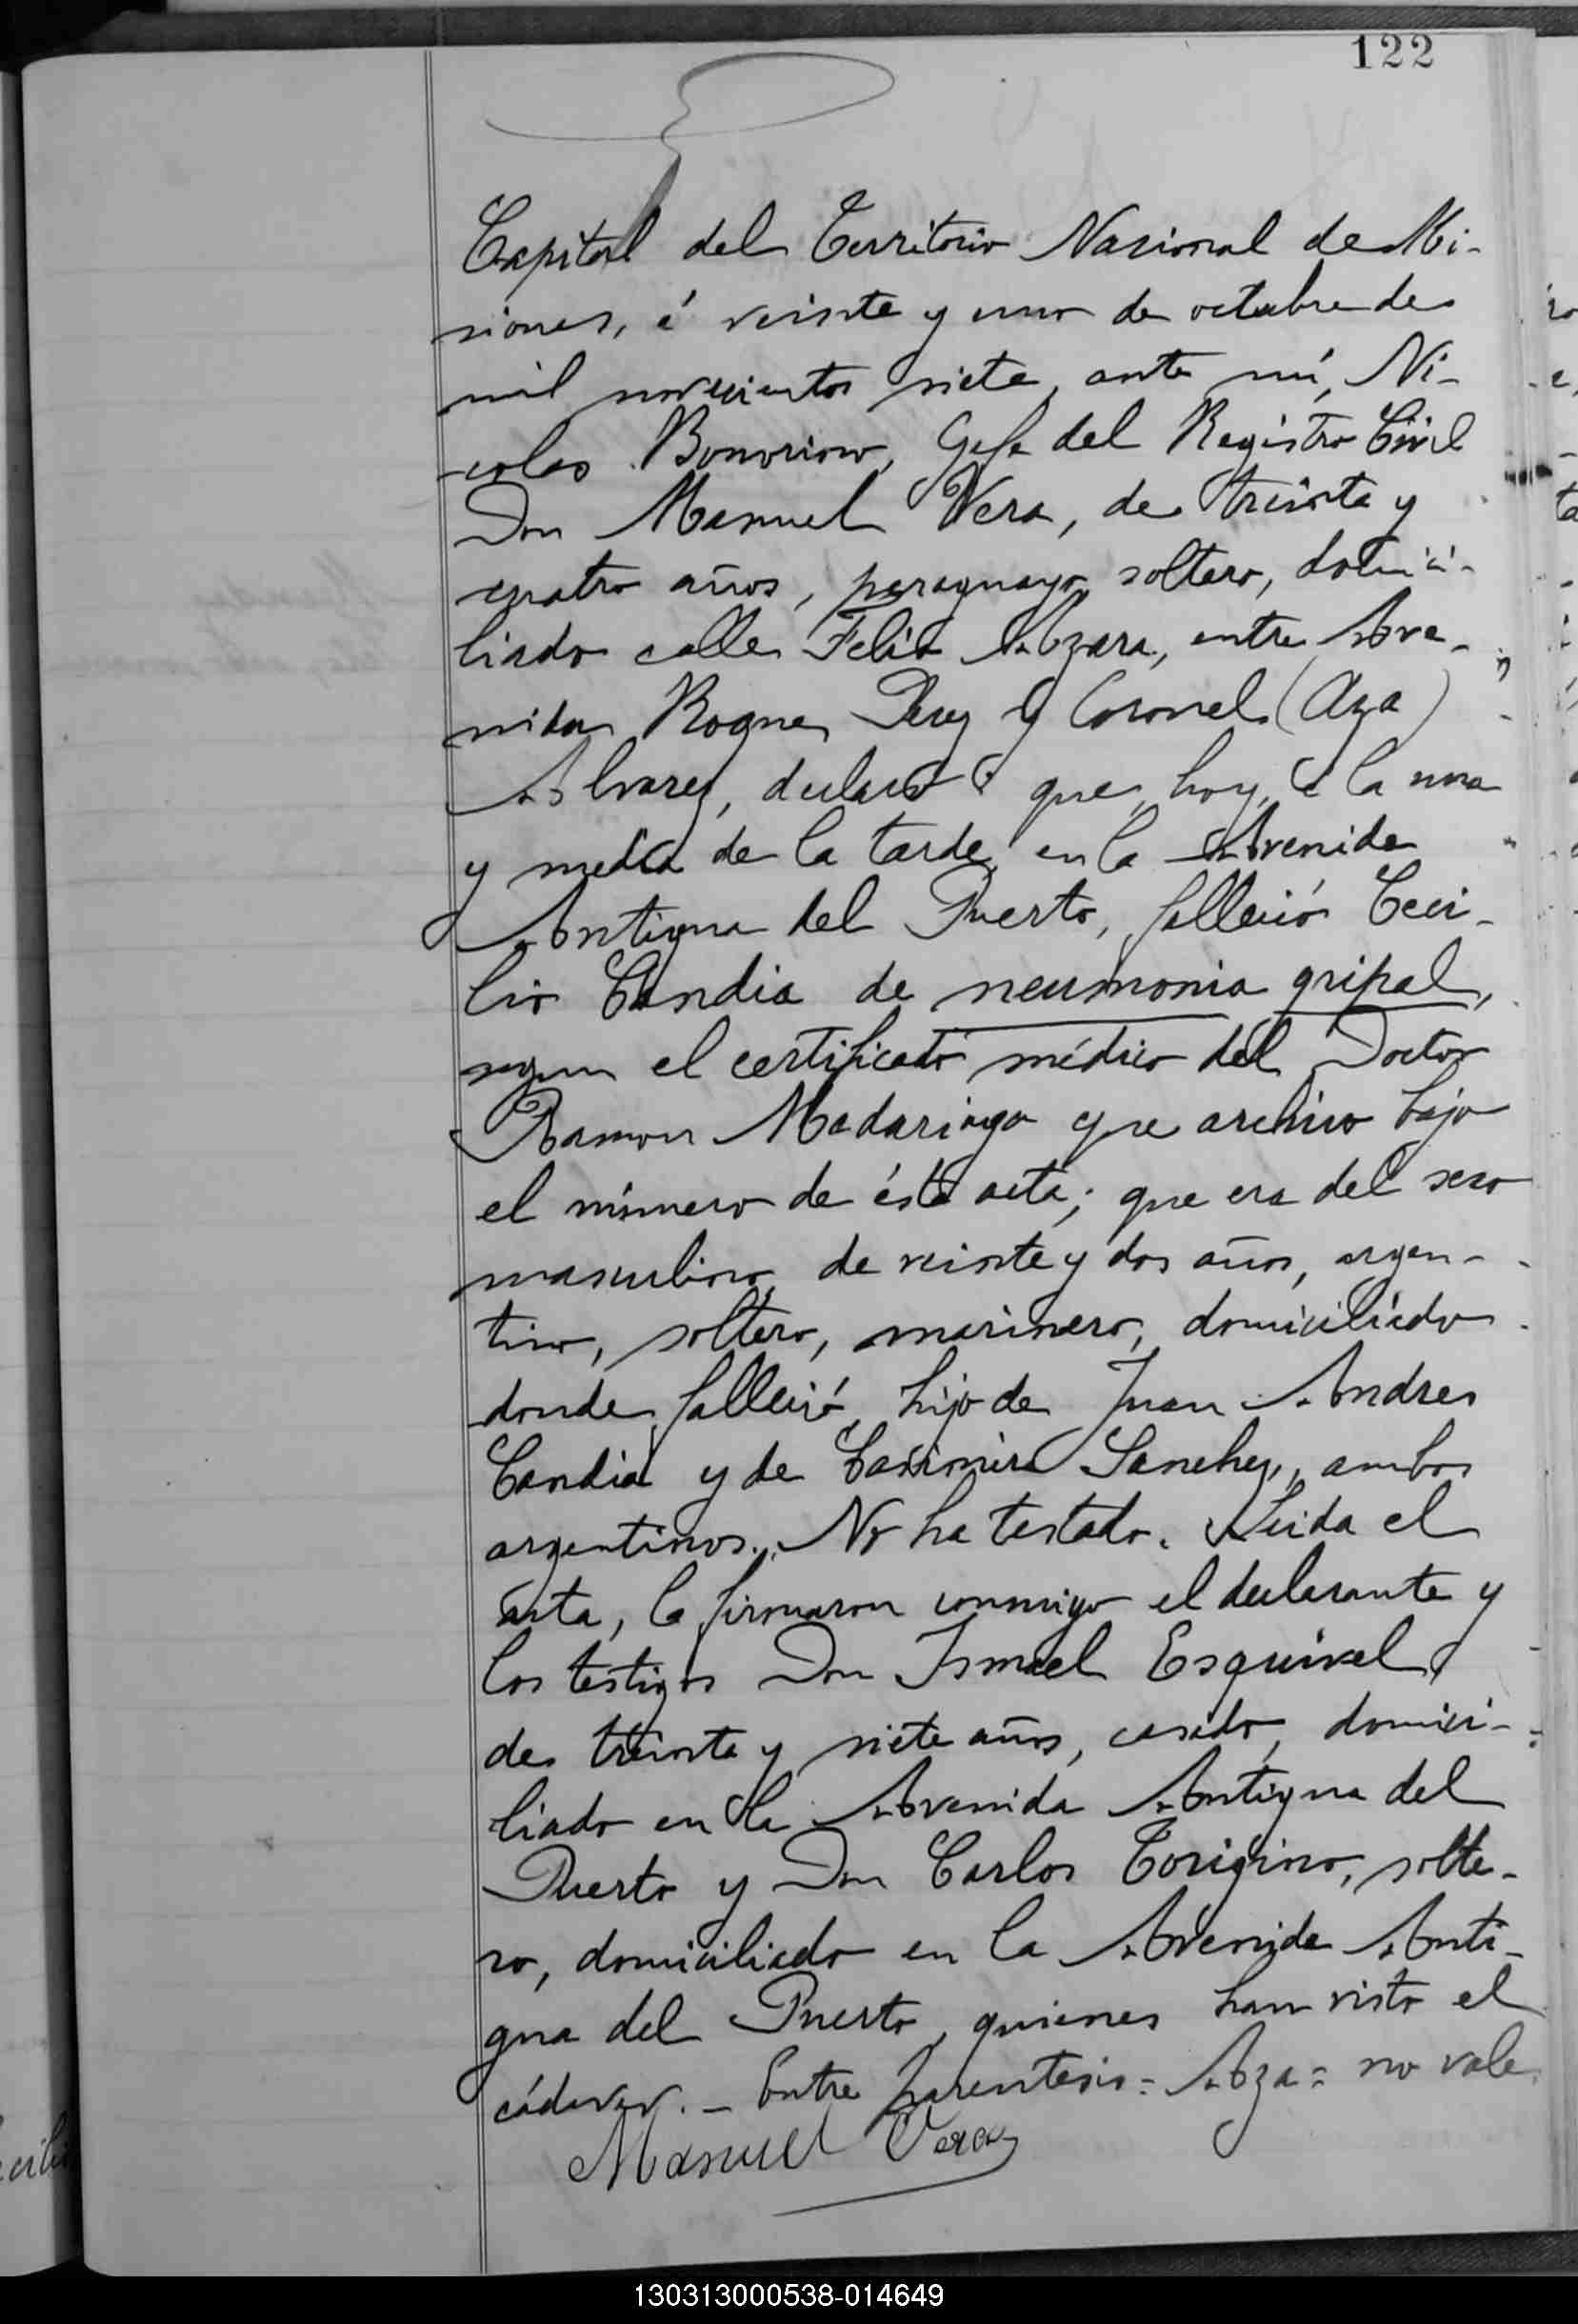 122
Capital del Territorio Nacional de Mi-
siones, á veinte y uno de octubre de
mil novecientos siete, ante mí, Ni-
colas Bonorino, Gefe del Registro Civil
Don Manuel Vera, de treinta y
cuatro años, paraguayo, soltero, domici-
liado calle Felix Azara, entre Ave-
nida Roque Perez y Coronel (Aza)
Alvarez, declaró que hoy, á la una
y media de la tarde, en la Avenida
Antigua del Puerto, falleció Ceci-
lio Candia de neumonia gripal,
segun el certificado médico del Doctor
Ramon Madariaga que archivo bajo
el número de ésta acta; que era del sexo
masculino, de veinte y dos años, argen-
tino, soltero, marinero, domiciliado
donde falleció, hijo de Juan Andres
Candia y de Casimira Sanchez, ambos
argentinos. No ha testado. Leida el
acta, la firmaron conmigo el declarante y
los testigos Don Ismael Esquivel,
de treinta y siete años, casado, domici-
liado en la Avenida Antigua del
Puerto y Don Carlos Corigino, solte-
ro, domiciliado en la Avenida Anti-
gua del Puerto, quienes han visto el
cádaver. - Entre parentesis = Aza = no vale.
Manuel Vera
130313000538-014649